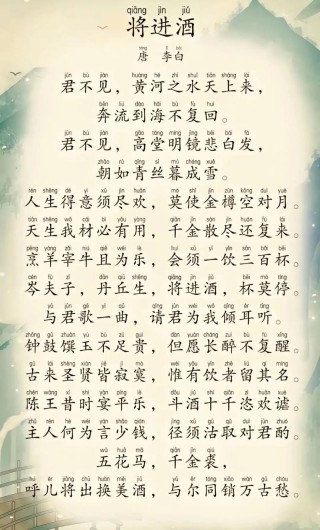 qiāng jìn jiǔ
将进酒
táng lǐ bái
唐 李白
jūn bú jiàn huáng hé zhī shuǐ tiān shàng lái
君不见，黄河之水天上来，
bēn liú dào hǎi bú fù huí
奔流到海不复回。
jūn bú jiàn gāo táng míng jìng bēi bái fà
君不见，高堂明镜悲白发，
zhāo rú qīng sī mù chéng xuě
朝如青丝暮成雪。
rén shēng dé yì xū jìn huān mò shǐ jīn zūn kōng duì yuè
人生得意须尽欢，莫使金樽空对月。
tiān shēng wǒ cái bì yǒu yòng qiān jīn sàn jìn huán fù lái
天生我材必有用，千金散尽还复来。
pēng yáng zǎi niú qiě wéi lè huì xū yì yǐn sān bǎi bēi
烹羊宰牛且为乐，会须一饮三百杯。
cén fū zǐ dān qiū shēng qiāng jìn jiǔ bēi mò tíng
岑夫子，丹丘生，将进酒，杯莫停。
yǔ jūn gē yì qǔ qǐng jūn wèi wǒ qīng ěr tīng
与君歌一曲，请君为我倾耳听。
zhōng gǔ zhuàn yù bù zú guì dàn yuàn cháng zuì bú fù xǐng
钟鼓馔玉不足贵，但愿长醉不复醒。
gǔ lái shèng xián jiē jì mò wéi yǒu yǐn zhě liú qí míng
古来圣贤皆寂寞，惟有饮者留其名。
chén wáng xī shí yàn píng lè dǒu jiǔ shí qiān zì huān xuè
陈王昔时宴平乐，斗酒十千恣欢谑。
zhǔ rén hé wéi yán shǎo qián jìng xū gū qǔ duì jūn zhuó
主人何为言少钱，径须沽取对君酌。
wǔ huā mǎ qiān jīn qiú
五花马，千金裘，
hū ér jiāng chū huàn měi jiǔ yǔ ěr tóng xiāo wàn gǔ chóu
呼儿将出换美酒，与尔同销万古愁。